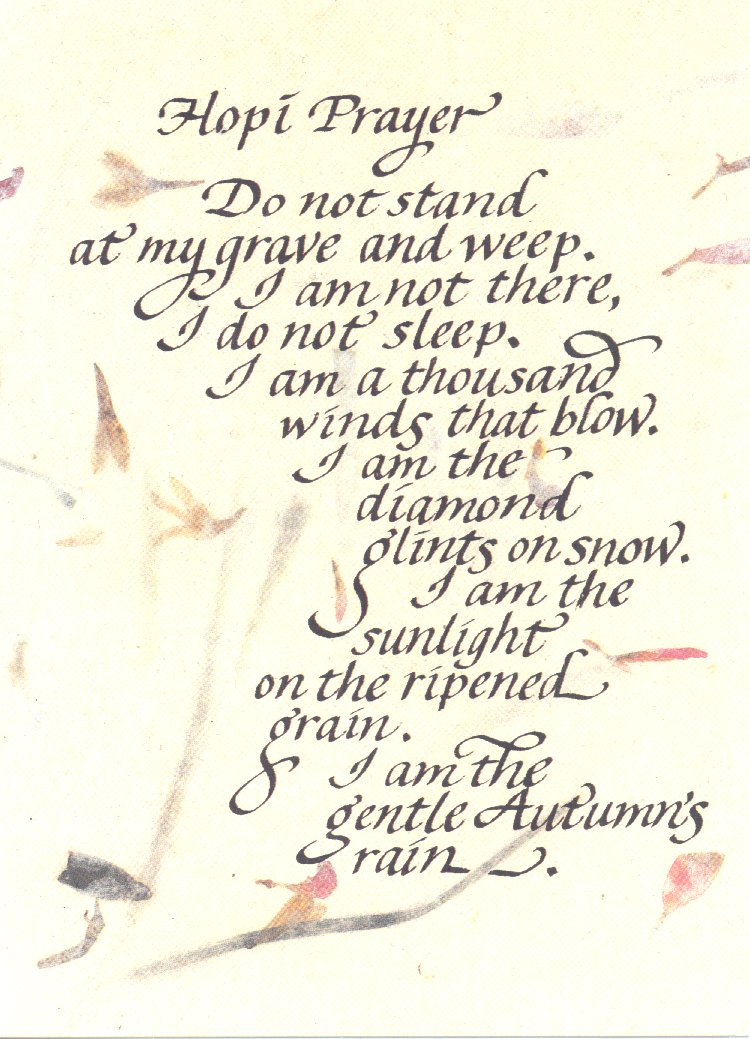 Hopi Prayer
Do not stand
at my grave and weep.
I am not there,
I do not sleep.
I am a thousand
winds that blow.
I am the
diamond
glints on snow.
I am the
sunlight
on the ripened
grain.
I am the
gentle Autumn's
rain.